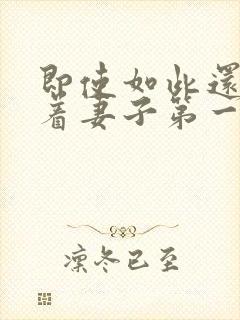 即使如此还
着妻子第一
凛冬已至